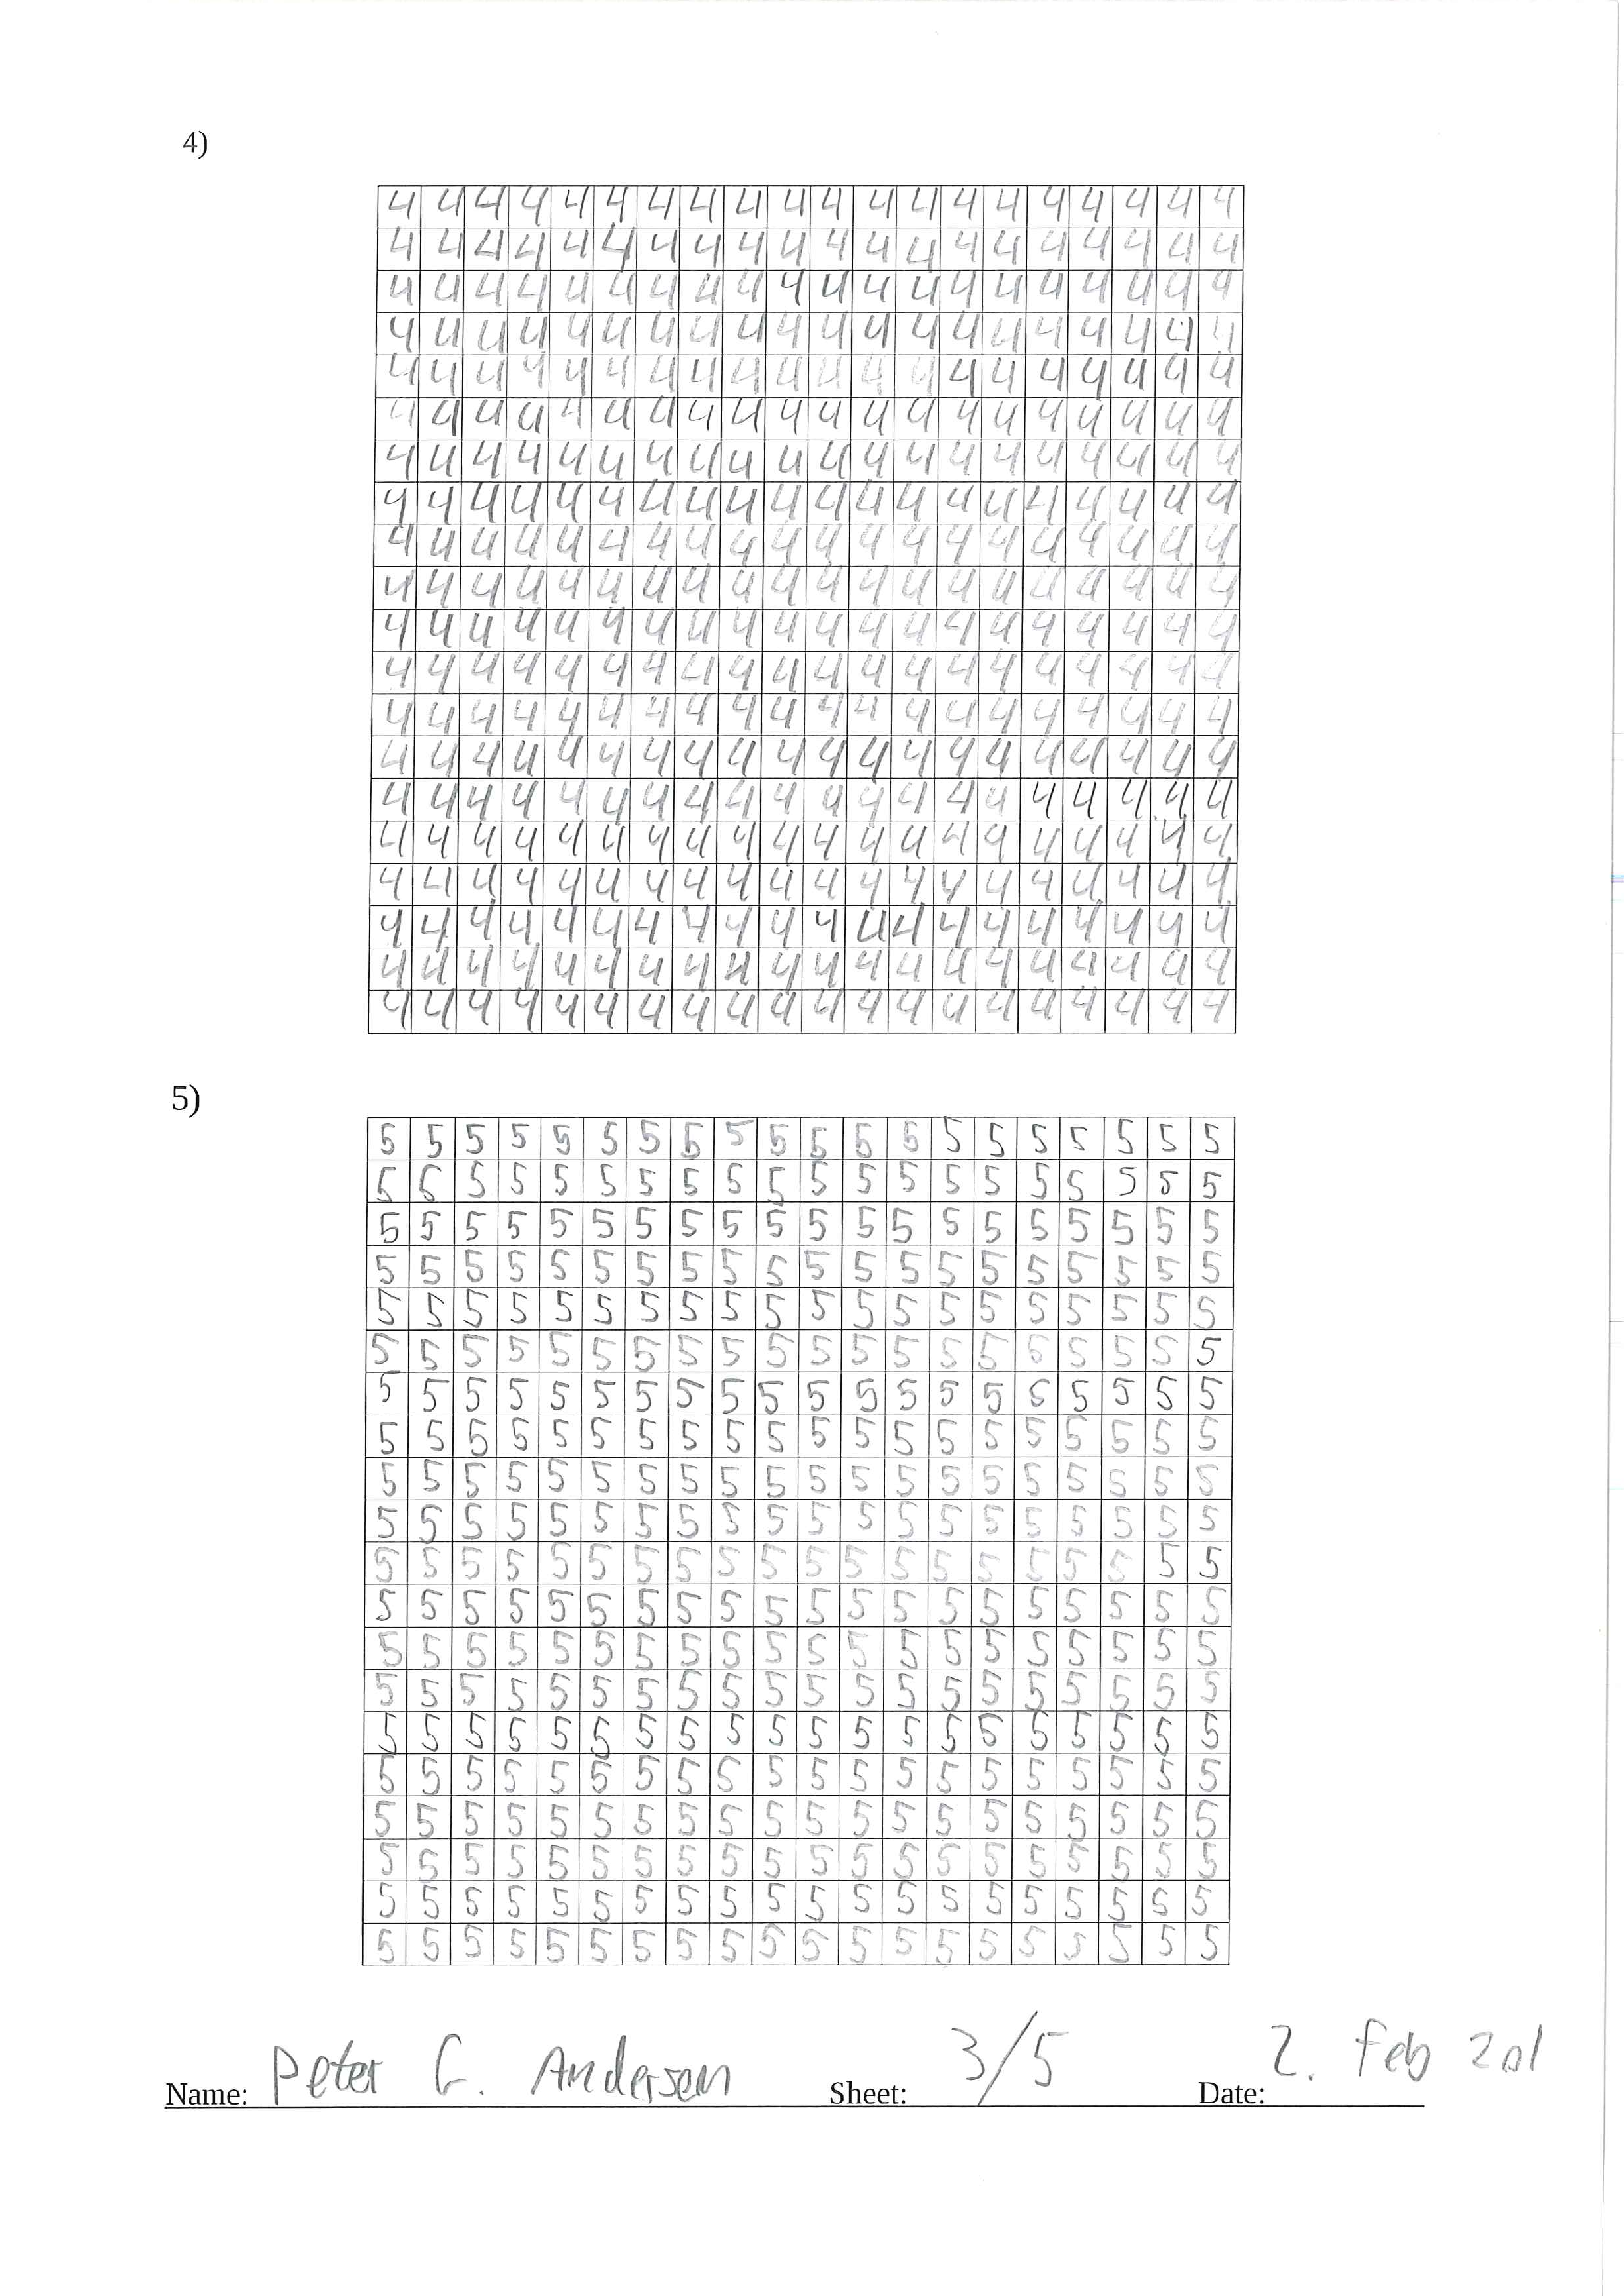 4)
4 4 4 4 4 4 4 4 4 4 4 4 4 4 4 4 4 4 4 4
4 4 4 4 4 4 4 4 4 4 4 4 4 4 4 4 4 4 4 4
4 4 4 4 4 4 4 4 4 4 4 4 4 4 4 4 4 4 4 4
4 4 4 4 4 4 4 4 4 4 4 4 4 4 4 4 4 4 4 4
4 4 4 4 4 4 4 4 4 4 4 4 4 4 4 4 4 4 4 4
4 4 4 4 4 4 4 4 4 4 4 4 4 4 4 4 4 4 4 4
4 4 4 4 4 4 4 4 4 4 4 4 4 4 4 4 4 4 4 4
4 4 4 4 4 4 4 4 4 4 4 4 4 4 4 4 4 4 4 4
4 4 4 4 4 4 4 4 4 4 4 4 4 4 4 4 4 4 4 4
4 4 4 4 4 4 4 4 4 4 4 4 4 4 4 4 4 4 4 4
4 4 4 4 4 4 4 4 4 4 4 4 4 4 4 4 4 4 4 4
4 4 4 4 4 4 4 4 4 4 4 4 4 4 4 4 4 4 4 4
4 4 4 4 4 4 4 4 4 4 4 4 4 4 4 4 4 4 4 4
4 4 4 4 4 4 4 4 4 4 4 4 4 4 4 4 4 4 4 4
4 4 4 4 4 4 4 4 4 4 4 4 4 4 4 4 4 4 4 4
4 4 4 4 4 4 4 4 4 4 4 4 4 4 4 4 4 4 4 4
4 4 4 4 4 4 4 4 4 4 4 4 4 4 4 4 4 4 4 4
4 4 4 4 4 4 4 4 4 4 4 4 4 4 4 4 4 4 4 4
4 4 4 4 4 4 4 4 4 4 4 4 4 4 4 4 4 4 4 4
4 4 4 4 4 4 4 4 4 4 4 4 4 4 4 4 4 4 4 4
5)
5 5 5 5 5 5 5 5 5 5 5 5 5 5 5 5 5 5 5 5
5 5 5 5 5 5 5 5 5 5 5 5 5 5 5 5 5 5 5 5
5 5 5 5 5 5 5 5 5 5 5 5 5 5 5 5 5 5 5 5
5 5 5 5 5 5 5 5 5 5 5 5 5 5 5 5 5 5 5 5
5 5 5 5 5 5 5 5 5 5 5 5 5 5 5 5 5 5 5 5
5 5 5 5 5 5 5 5 5 5 5 5 5 5 5 5 5 5 5 5
5 5 5 5 5 5 5 5 5 5 5 5 5 5 5 5 5 5 5 5
5 5 5 5 5 5 5 5 5 5 5 5 5 5 5 5 5 5 5 5
5 5 5 5 5 5 5 5 5 5 5 5 5 5 5 5 5 5 5 5
5 5 5 5 5 5 5 5 5 5 5 5 5 5 5 5 5 5 5 5
5 5 5 5 5 5 5 5 5 5 5 5 5 5 5 5 5 5 5 5
5 5 5 5 5 5 5 5 5 5 5 5 5 5 5 5 5 5 5 5
5 5 5 5 5 5 5 5 5 5 5 5 5 5 5 5 5 5 5 5
5 5 5 5 5 5 5 5 5 5 5 5 5 5 5 5 5 5 5 5
5 5 5 5 5 5 5 5 5 5 5 5 5 5 5 5 5 5 5 5
5 5 5 5 5 5 5 5 5 5 5 5 5 5 5 5 5 5 5 5
5 5 5 5 5 5 5 5 5 5 5 5 5 5 5 5 5 5 5 5
5 5 5 5 5 5 5 5 5 5 5 5 5 5 5 5 5 5 5 5
5 5 5 5 5 5 5 5 5 5 5 5 5 5 5 5 5 5 5 5
5 5 5 5 5 5 5 5 5 5 5 5 5 5 5 5 5 5 5 5
Name: Peter G. Andersen Sheet: 3/5 Date: 2. Feb 201